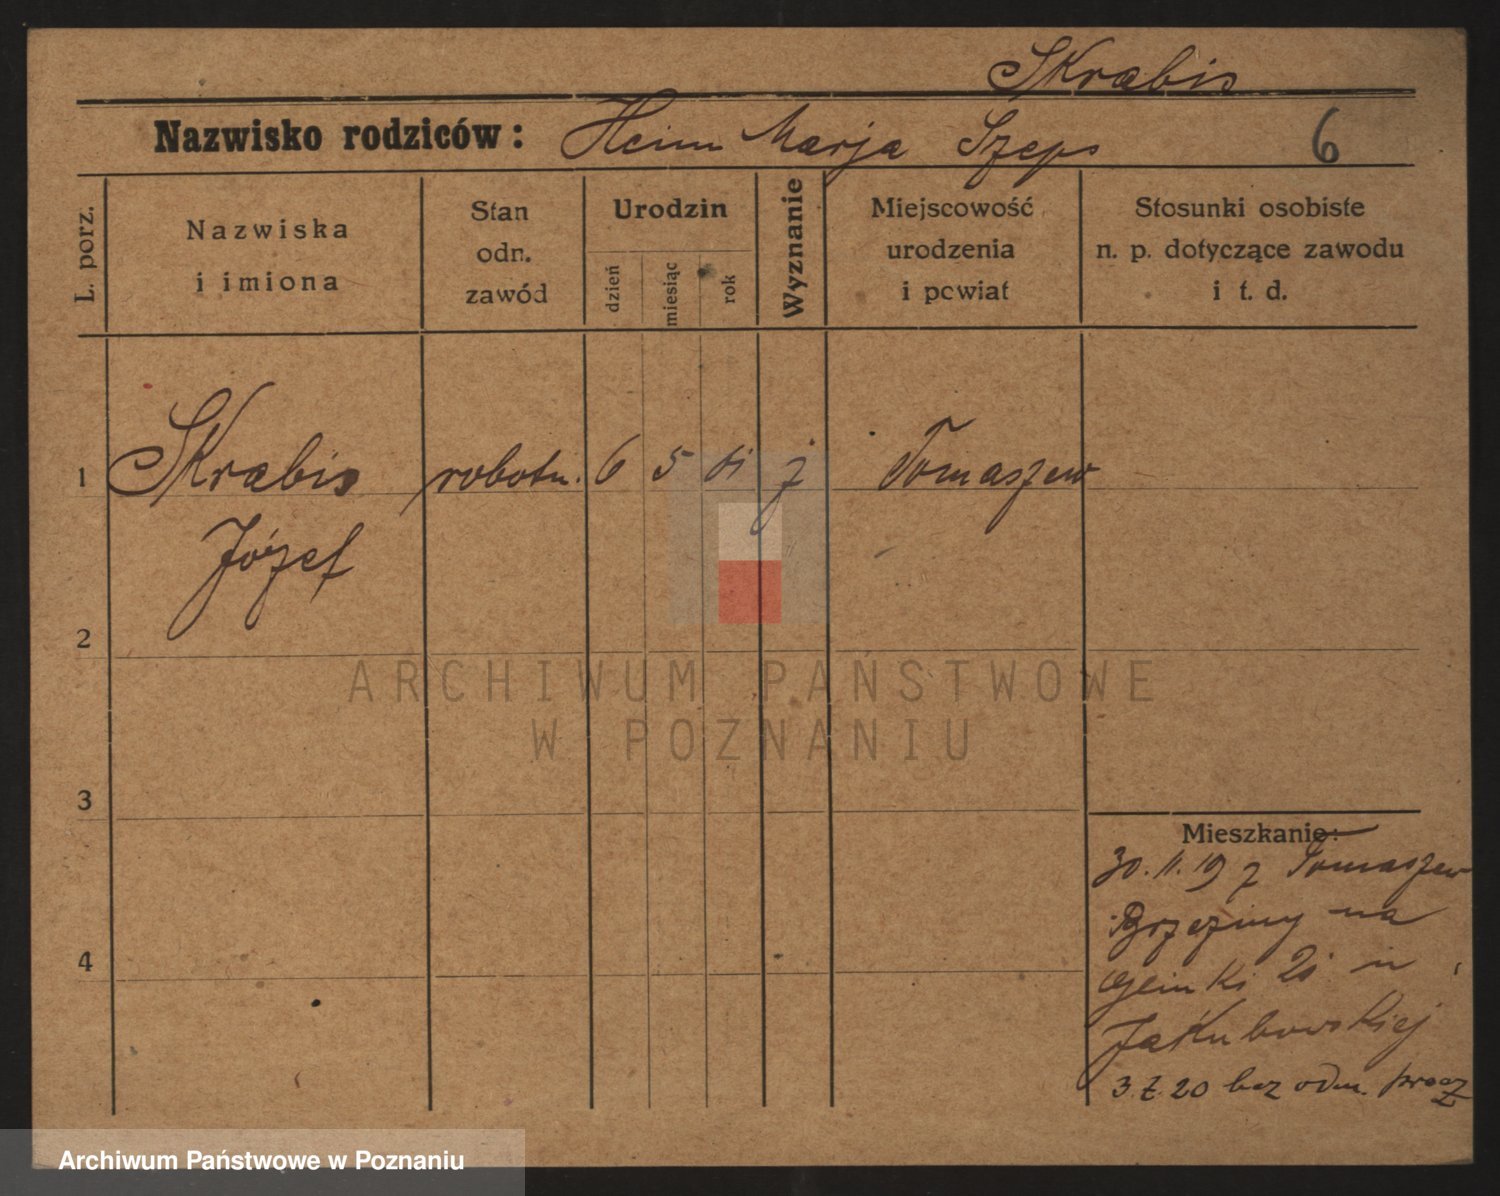 Skrabis
Nazwisko rodziców: Heim Marja Szeps 6
L. porz.
Nazwiska
i imiona
Stan
odn.
zawód
Urodzin
dzień
miesiąc
rok
Wyznanie
Miejscowość
urodzenia
i powiat
Stosunki osobiste
n. p. dotyczące zawodu
i t. d.
1 Skrabis robotn. 6 5 j Tomaszew
Józef
2
3
4
Mieszkanie:
30.11.19 z Tomaszew
Brzeziny na
Glinki
Jakubowskiej
3.2.20 bez odm. precz
ARCHIWUM PAŃSTWOWE
W POZNANIU
Archiwum Państwowe w Poznaniu